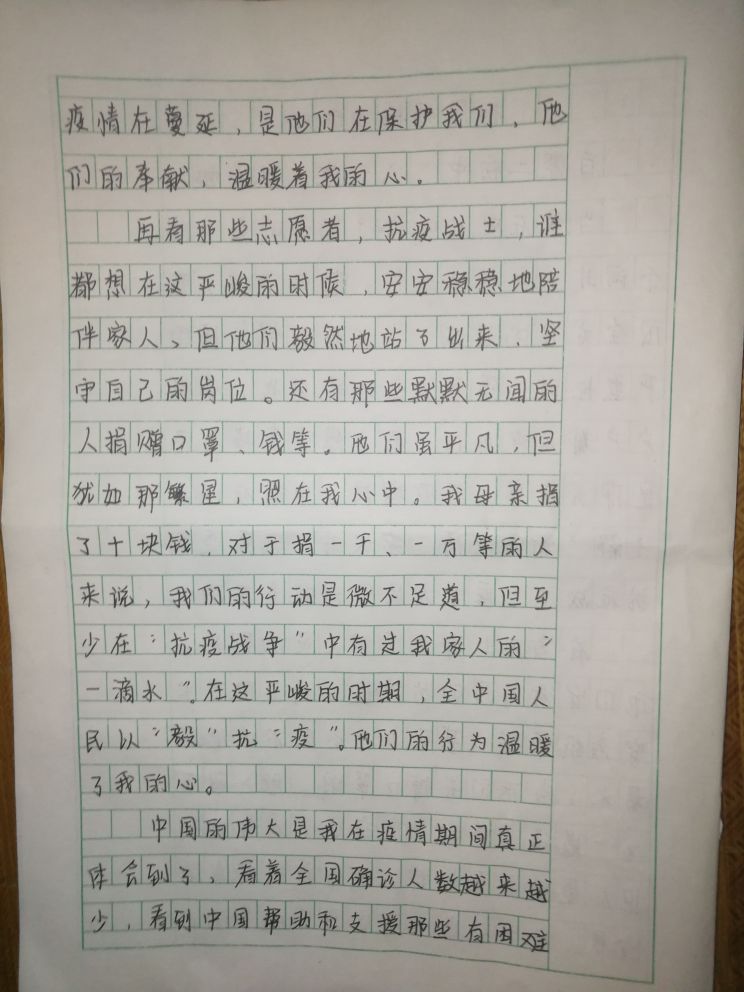 疫情在蔓延，是他们在保护我们，他
们的奉献，温暖着我的心。
再看那些志愿者，抗疫战士，谁
都想在这严峻的时候，安安稳稳地陪
伴家人、但他们毅然地站了出来，坚
守自己的岗位。还有那些默默无闻的
人捐赠口罩、钱等。他们虽平凡，但
犹如那繁星，照在我心中。我母亲捐
了十块钱，对于捐一千、一万等的人
来说，我们的行动是微不足道，但至
少在“抗疫战争”中有过我家人的“
一滴水”。在这严峻的时期，全中国人
民以“毅”抗“疫”。他们的行为温暖
了我的心。
中国的伟大是我在疫情期间真正
体会到了，看着全国确诊人数越来越
少，看到中国帮助和支援那些有困难